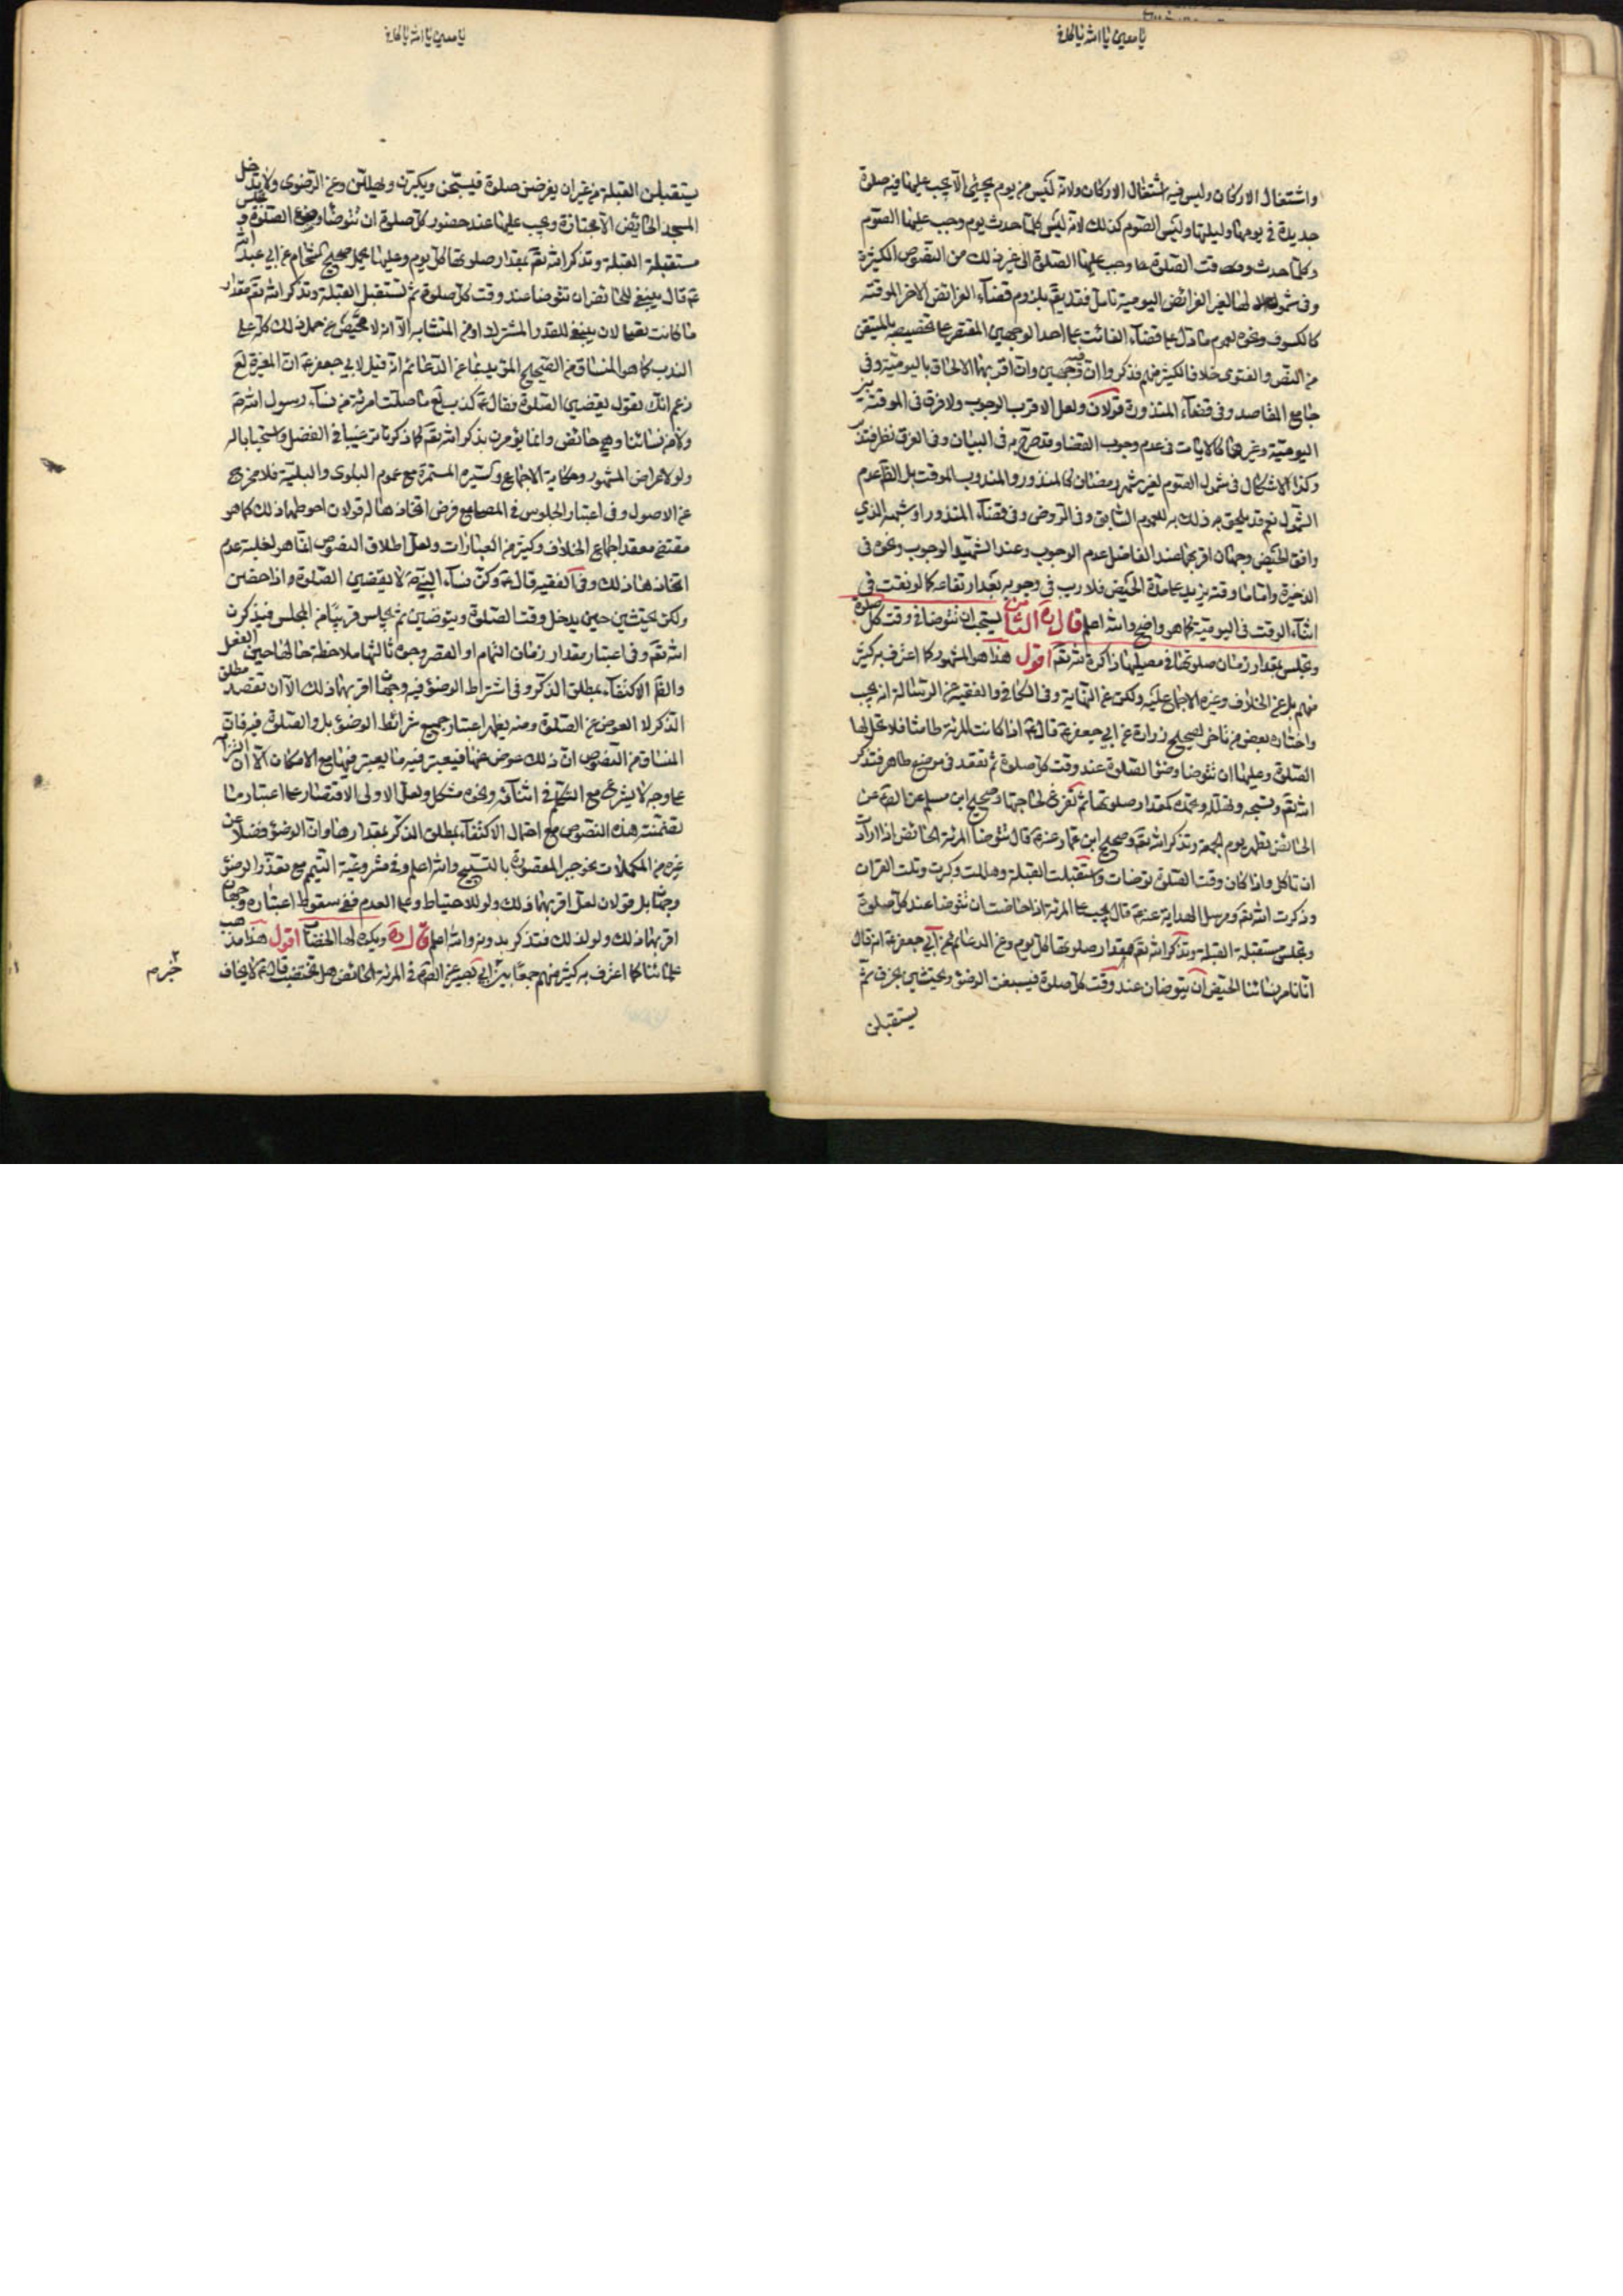 يا معين يا الله
واشتغال الاركان وليس فيه اشتغال الاركان ولانه ليس من يوم يجيئ الا يجب عليها فيه صلوة
جديدة في يومها وليلتها وليس الصوم كذلك لانه ليس كلما حدث يوم وجب عليها الصوم
وكلما حدث وقت الصلوة وجب عليها الصلوة الى غير ذلك من النصوص الكثيرة
وفي شمول لغير الفرائض اليومية تامل فقد يقال بلزوم قضاء الفرائض الاخر الموقتة
كالكسوف ونحوه لعموم ما دل على قضاء الفائت على احد الوجهين المقتصر على تخصيصه بالمتيقن
من النص والفتوى خلافا لكثير منهم فذكروا ان وجهين وان اقربهما الالحاق باليومية وفي
جامع المقاصد وفي قضاء المنذورة قولان ولعل الاقرب الوجوب ولا فرق في الموقتة بين
اليومية وغيرها كالايات في عدم وجوب القضا وقد صرح به في البيان وفي الفرق نظر فتدبر
وكذا الاشكال في شمول الصوم لغير شهر رمضان كالمنذور والمندوب الموقت بل الظ عدم
الشمول نعم قد يلحق به ذلك به للعموم السابق وفي الروض وفي قضاء المنذور او شبهه الذي
وافق الحيض وجهان اقربهما عند الفاضل عدم الوجوب وعند الشهيد الوجوب ونحوه في
الذخيرة واما ما وقته يزيد على مدة الحيض فلا ريب في وجوبه بعد ارتفاعه كما لو نقت في
اثناء الوقت في اليومية كما هو واضح والله اعلم قال ره الثامن يستحب ان تتوضا في وقت كل صلوة
وتجلس بمقدار زمان صلوتها في مصليها ذاكرة لله تعالى اقول هذا هو المشهور كما اعترف به كثير
منهم بل عن الخلاف وغيره الاجماع عليه ولكن عن النهاية وفي الكافي والفقيه عن الرسالة انه يجب
واختاره بعض من تاخر لصحيح زرارة عن ابي جعفر ع قال اذا كانت المرئة طامثا فلا تحل لها
الصلوة وعليها ان تتوضا وضوء الصلوة عند وقت كل صلوة ثم تقعد في موضع طاهر فتذكر
الله تعالى وتسبحه وتهلله وتحمده كمقدار صلوتها ثم تفرغ لحاجتها وصحيح ابن مسلم عن الص ع عن
الحائض تطهر يوم الجمعة وتذكر الله تعالى وصحيح ابن عمار عنه ع قال تتوضا المرئة الحائض اذا ارادت
ان تاكل واذا كان وقت الصلوة توضات واستقبلت القبلة وهللت وكبرت وتلت القران
وذكرت الله تعالى ومرسل الهداية عنه ع قال يجب على المرئة اذا حاضت ان تتوضا عند كل صلوة
وتجلس مستقبلة القبلة وتذكر الله تعالى بمقدار صلوتها كل يوم وعن الدعائم عن ابي جعفر ع انه قال
انا نامر نسائنا الحيض ان يتوضان عند وقت كل صلوة فيسبغن الوضوء ويحتشين بخرق ثم
يستقبلن
يا معين يا الله
يستقبلن القبلة من غير ان يفرضن صلوة فيسبحن ويكبرن ويهللن وعن الرضوى ولا يدخل
المسجد الحائض الا مجتازة ويجب عليها عند حضور كل صلوة ان تتوضا وضوء الصلوة وتجلس
مستقبلة القبلة وتذكر الله تعالى بمقدار صلوتها كل يوم وعليها يحمل صحيح الشحام عن ابي عبد الله
ع قال ينبغي للحائض ان تتوضا عند وقت كل صلوة ثم تستقبل القبلة وتذكر الله تعالى مقدار
ما كانت تصلي لان ينبغي للقدر المشترك او من المتشابه الا انه لا محيص عن حمل ذلك كله على
الندب كما هو المنساق من الصحيح المؤيد بما عن الدعائم انه قيل لابي جعفر ع ان المغيرة
زعم انك تقول يقضين الصلوة فقال ع كذب ما صلت امرئة من نساء رسول الله ص
ولا من نسائنا وهي حائض وانما يؤمرن بذكر الله تعالى كما ذكرنا ترغيبا في الفضل واستحبابا له
ولو لاعراض المشهور وحكاية الاجماع وكسيرة المستمرة مع عموم البلوى والبلية فلا مخرج
عن الاصول وفي اعتبار الجلوس في المصلى مع فرض اتخاذها له قولان احوطهما ذلك كما هو
مقتضى معقد اجماع الخلاف وكثير من العبارات ولعل اطلاق النصوص لغلبة عدم
اتخاذها ذلك وفي الفقيه قال ع وكن نساء النبي ص لا يقضين الصلوة واذا حضن
ولكن يحتشين حين يدخل وقت الصلوة ويتوضين ثم يجلسن قريبا من المجلس فيذكرن
الله تعالى وفي اعتبار مقدار زمان التمام او القصر وجوه ثالثها ملاحظة حالها حين الفعل
والظ الاكتفاء بمطلق الذكر وفي اشتراط الوضوء فيه وجهان اقربهما ذلك الا ان تقصد مطلق
الذكر لا العوض عن الصلوة ومنه يظهر اعتبار جميع شرائط الوضوء بل والصلوة فيه فان
المنساق من النصوص ان ذلك عوض عنها فيعتبر فيه ما يعتبر فيها مع الامكان الا ان
على وجه لا يشرع مع التكلم في اثنائه ونحوه مشكل ولعل الاولى الاقتصار على اعتبار ما
تضمنته هذه النصوص مع احتمال الاكتفاء بمطلق الذكر بمقدارها وان الوضوء فضلا عن
غيره من المكملات نحو جبر المقصورة بالتسبيح والله اعلم وفي مشروعية التيمم مع تعذر الوضوء
وجهان بل قولان لعل اقربهما ذلك ولو للاحتياط وعلى العدم ففي سقوط اعتباره وجهان
اقربهما ذلك ولو لذلك فتذكر بدونه والله اعلم قال ره ويكره لها الخضاب اقول هذا مذهب
علمائنا كما اعترف به كثير منهم جمعا بين ابي بصير عن الص ع في المرئة الحائض هل تختضب قال ع لا يخاف